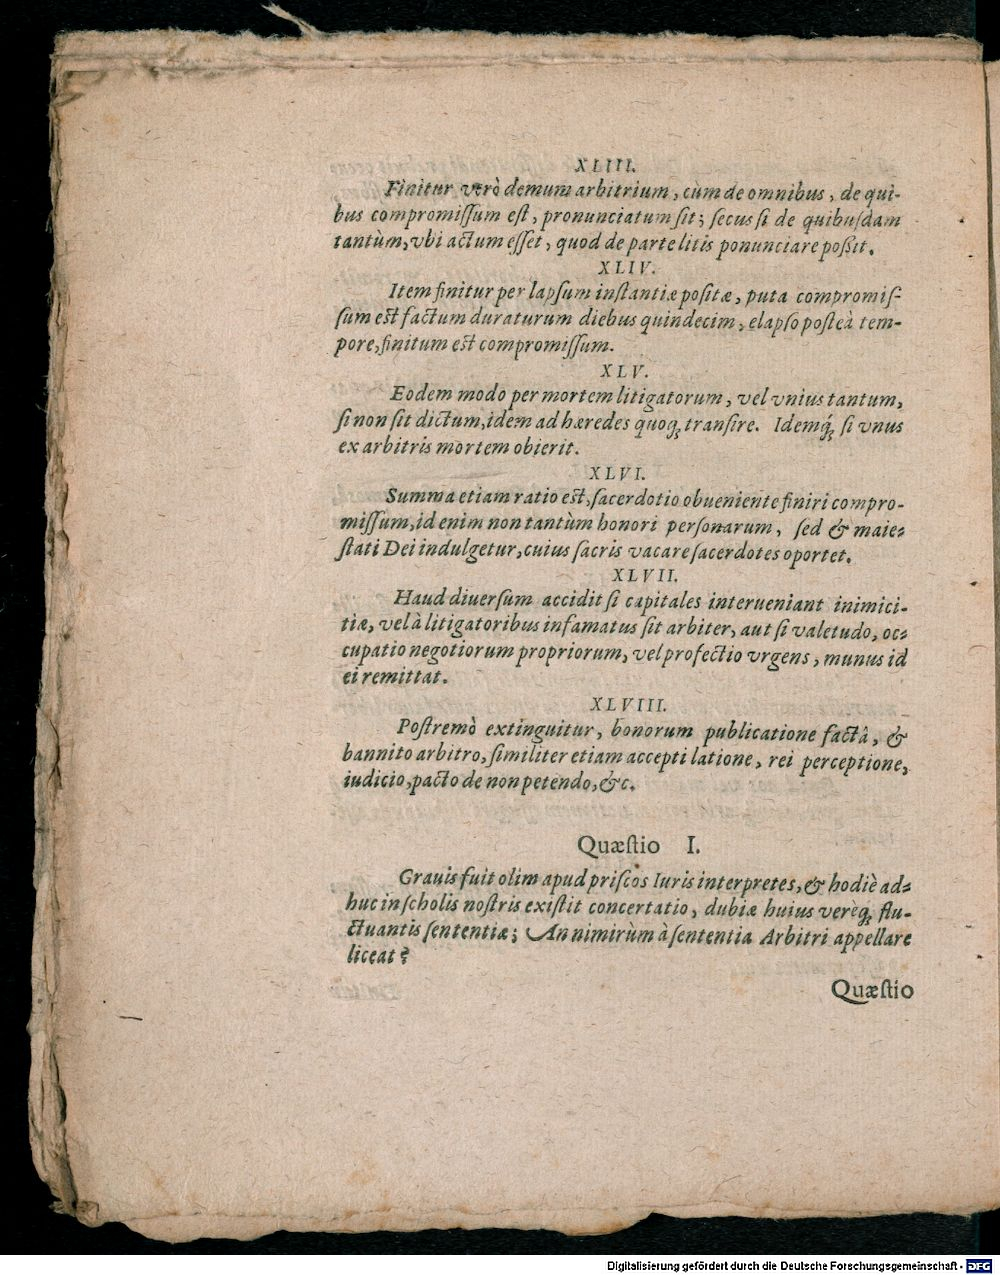 XLIII.
Finitur verò demum arbitrium, cum de omnibus, de qui-
bus compromiſſum eſt, pronunciatum ſit; ſecus ſi de quibuſdam
tantùm, vbi actum eſſet, quod de parte litis ponunciare poßit.
XLIV.
Item finitur per lapſum inſtantiæ poſitæ, puta compromiſ-
ſum eſt factum duraturum diebus quindecim, elapſo poſteà tem-
pore, finitum eſt compromiſſum.
XLV.
Eodem modo per mortem litigatorum, vel vnius tantum,
ſi non ſit dictum, idem ad hæredes quoq; tranſire. Idemq́; ſi vnus
ex arbitris mortem obierit.
XLVI.
Summa etiam ratio eſt, ſacerdotio obueniente finiri compro-
miſſum, id enim non tantùm honori perſonarum, ſed & maie-
ſtati Dei indulgetur, cuius ſacris vacare ſacerdotes oportet.
XLVII.
Haud diuerſum accidit ſi capitales interueniant inimici-
tiæ, vel à litigatoribus infamatus ſit arbiter, aut ſi valetudo, oc-
cupatio negotiorum propriorum, vel profectio vrgens, munus id
ei remittat.
XLVIII.
Poſtremò extinguitur, bonorum publicatione factâ, &
bannito arbitro, ſimiliter etiam accepti latione, rei perceptione,
iudicio, pacto de non petendo, &c.
Quæſtio I.
Grauis fuit olim apud priſcos Iuris interpretes, & hodiè ad-
huc in ſcholis noſtris exiſtit concertatio, dubiæ huius verèq; flu-
ctuantis ſententiæ; An nimirùm à ſententia Arbitri appellare
liceat?
Quæſtio
Digitalisierung gefördert durch die Deutsche Forschungsgemeinschaft - DFG